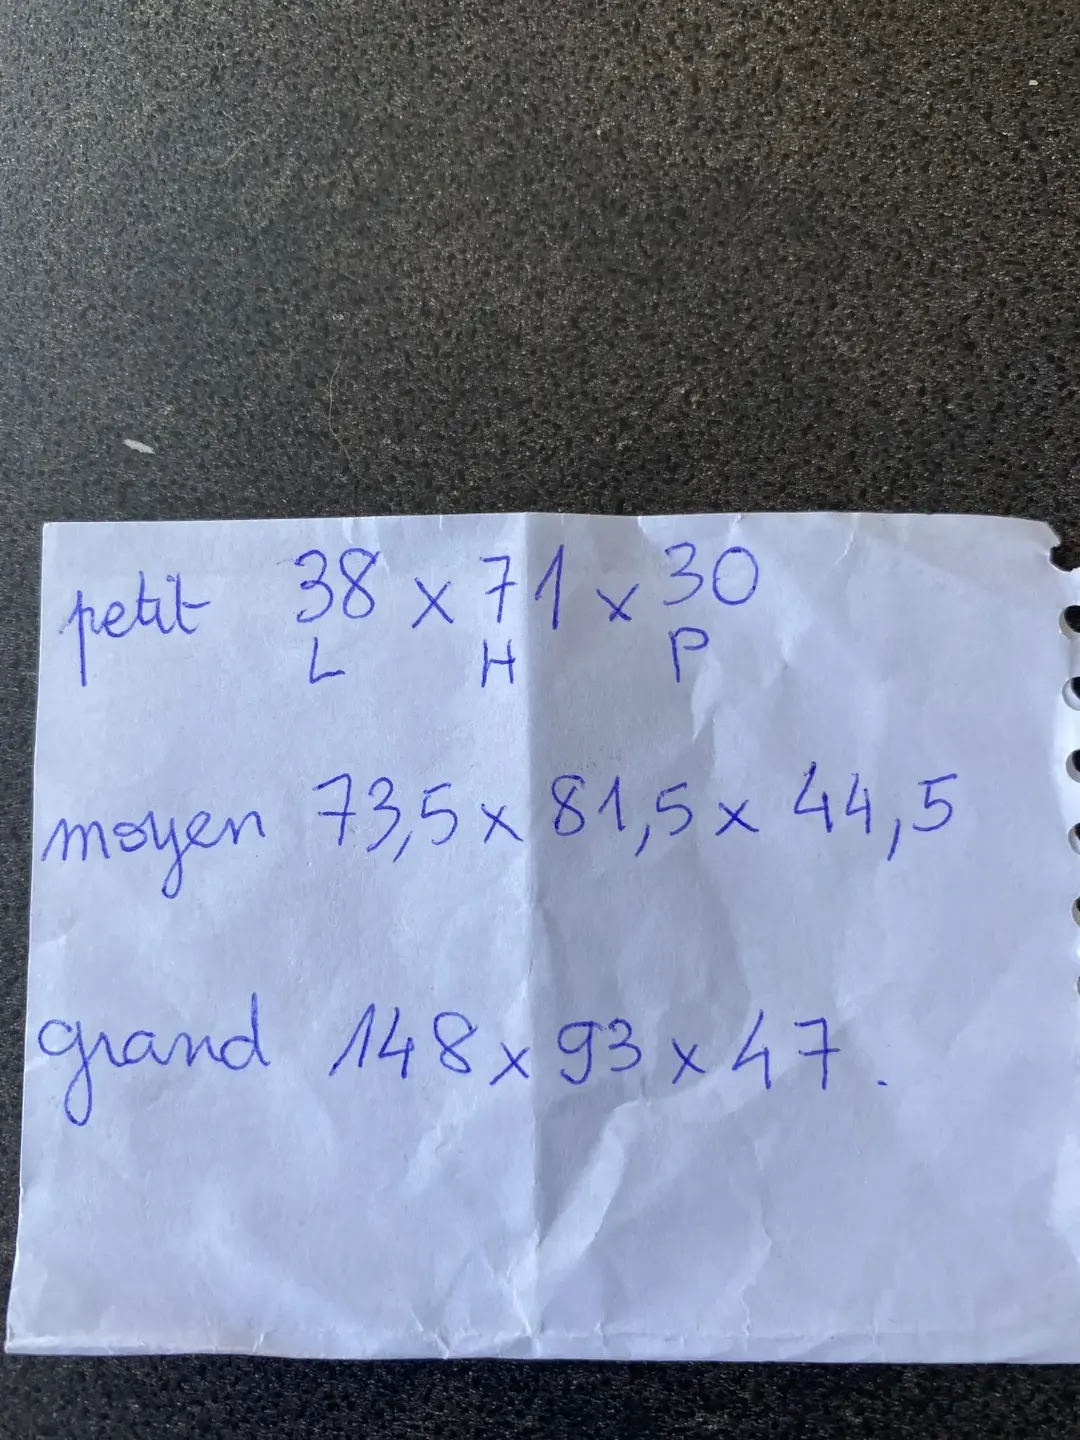 petit 38 x 71 x 30
L H P
moyen 73,5 x 81,5 x 44,5
grand 148 x 93 x 47.